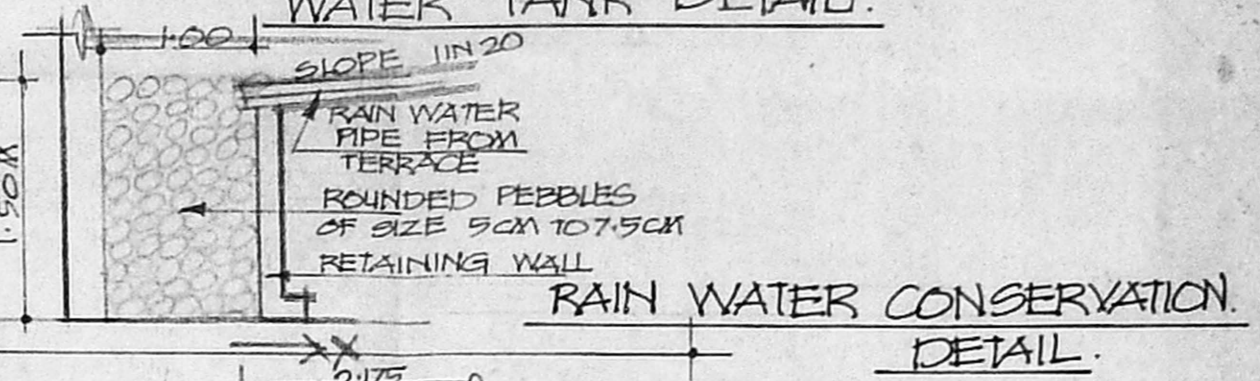 WATER TANK DETAIL.
1.00
SLOPE 1IN 20
RAIN WATER
PIPE FROM
TERRACE
ROUNDED PEBBLES
OF SIZE 5CM TO 7.5CM
RETAINING WALL
RAIN WATER CONSERVATION.
DETAIL.
1.50
X
2.175